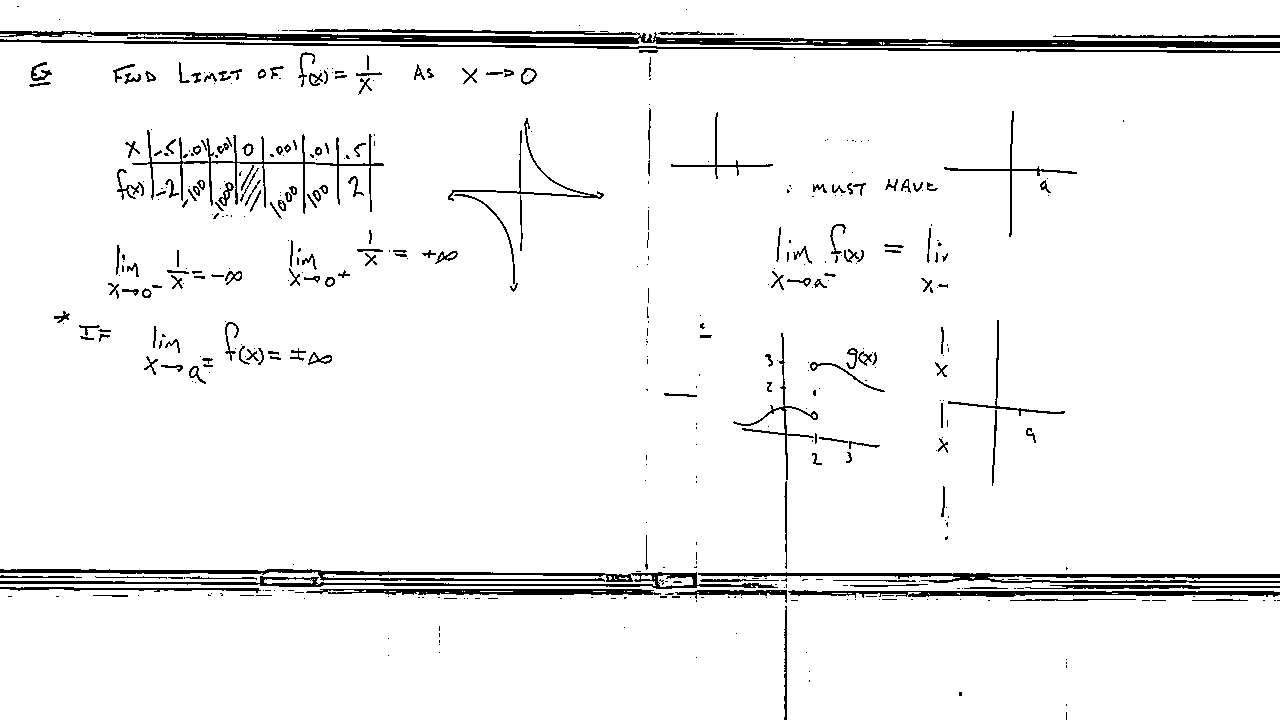 Ex FIND LIMIT OF f(x) = 1/x AS x → 0
x | -.5 | -.01 | -.001 | 0 | .001 | .01 | .5
f(x) | -2 | -100 | -1000 | | 1000 | 100 | 2
lim x→0⁻ 1/x = -∞ lim x→0⁺ 1/x = +∞
* IF lim x→a± f(x) = ±∞
a
MUST HAVE
lim x→a⁻ f(x) = li
x→
3
2
1
g(x)
2 3
x
x
a